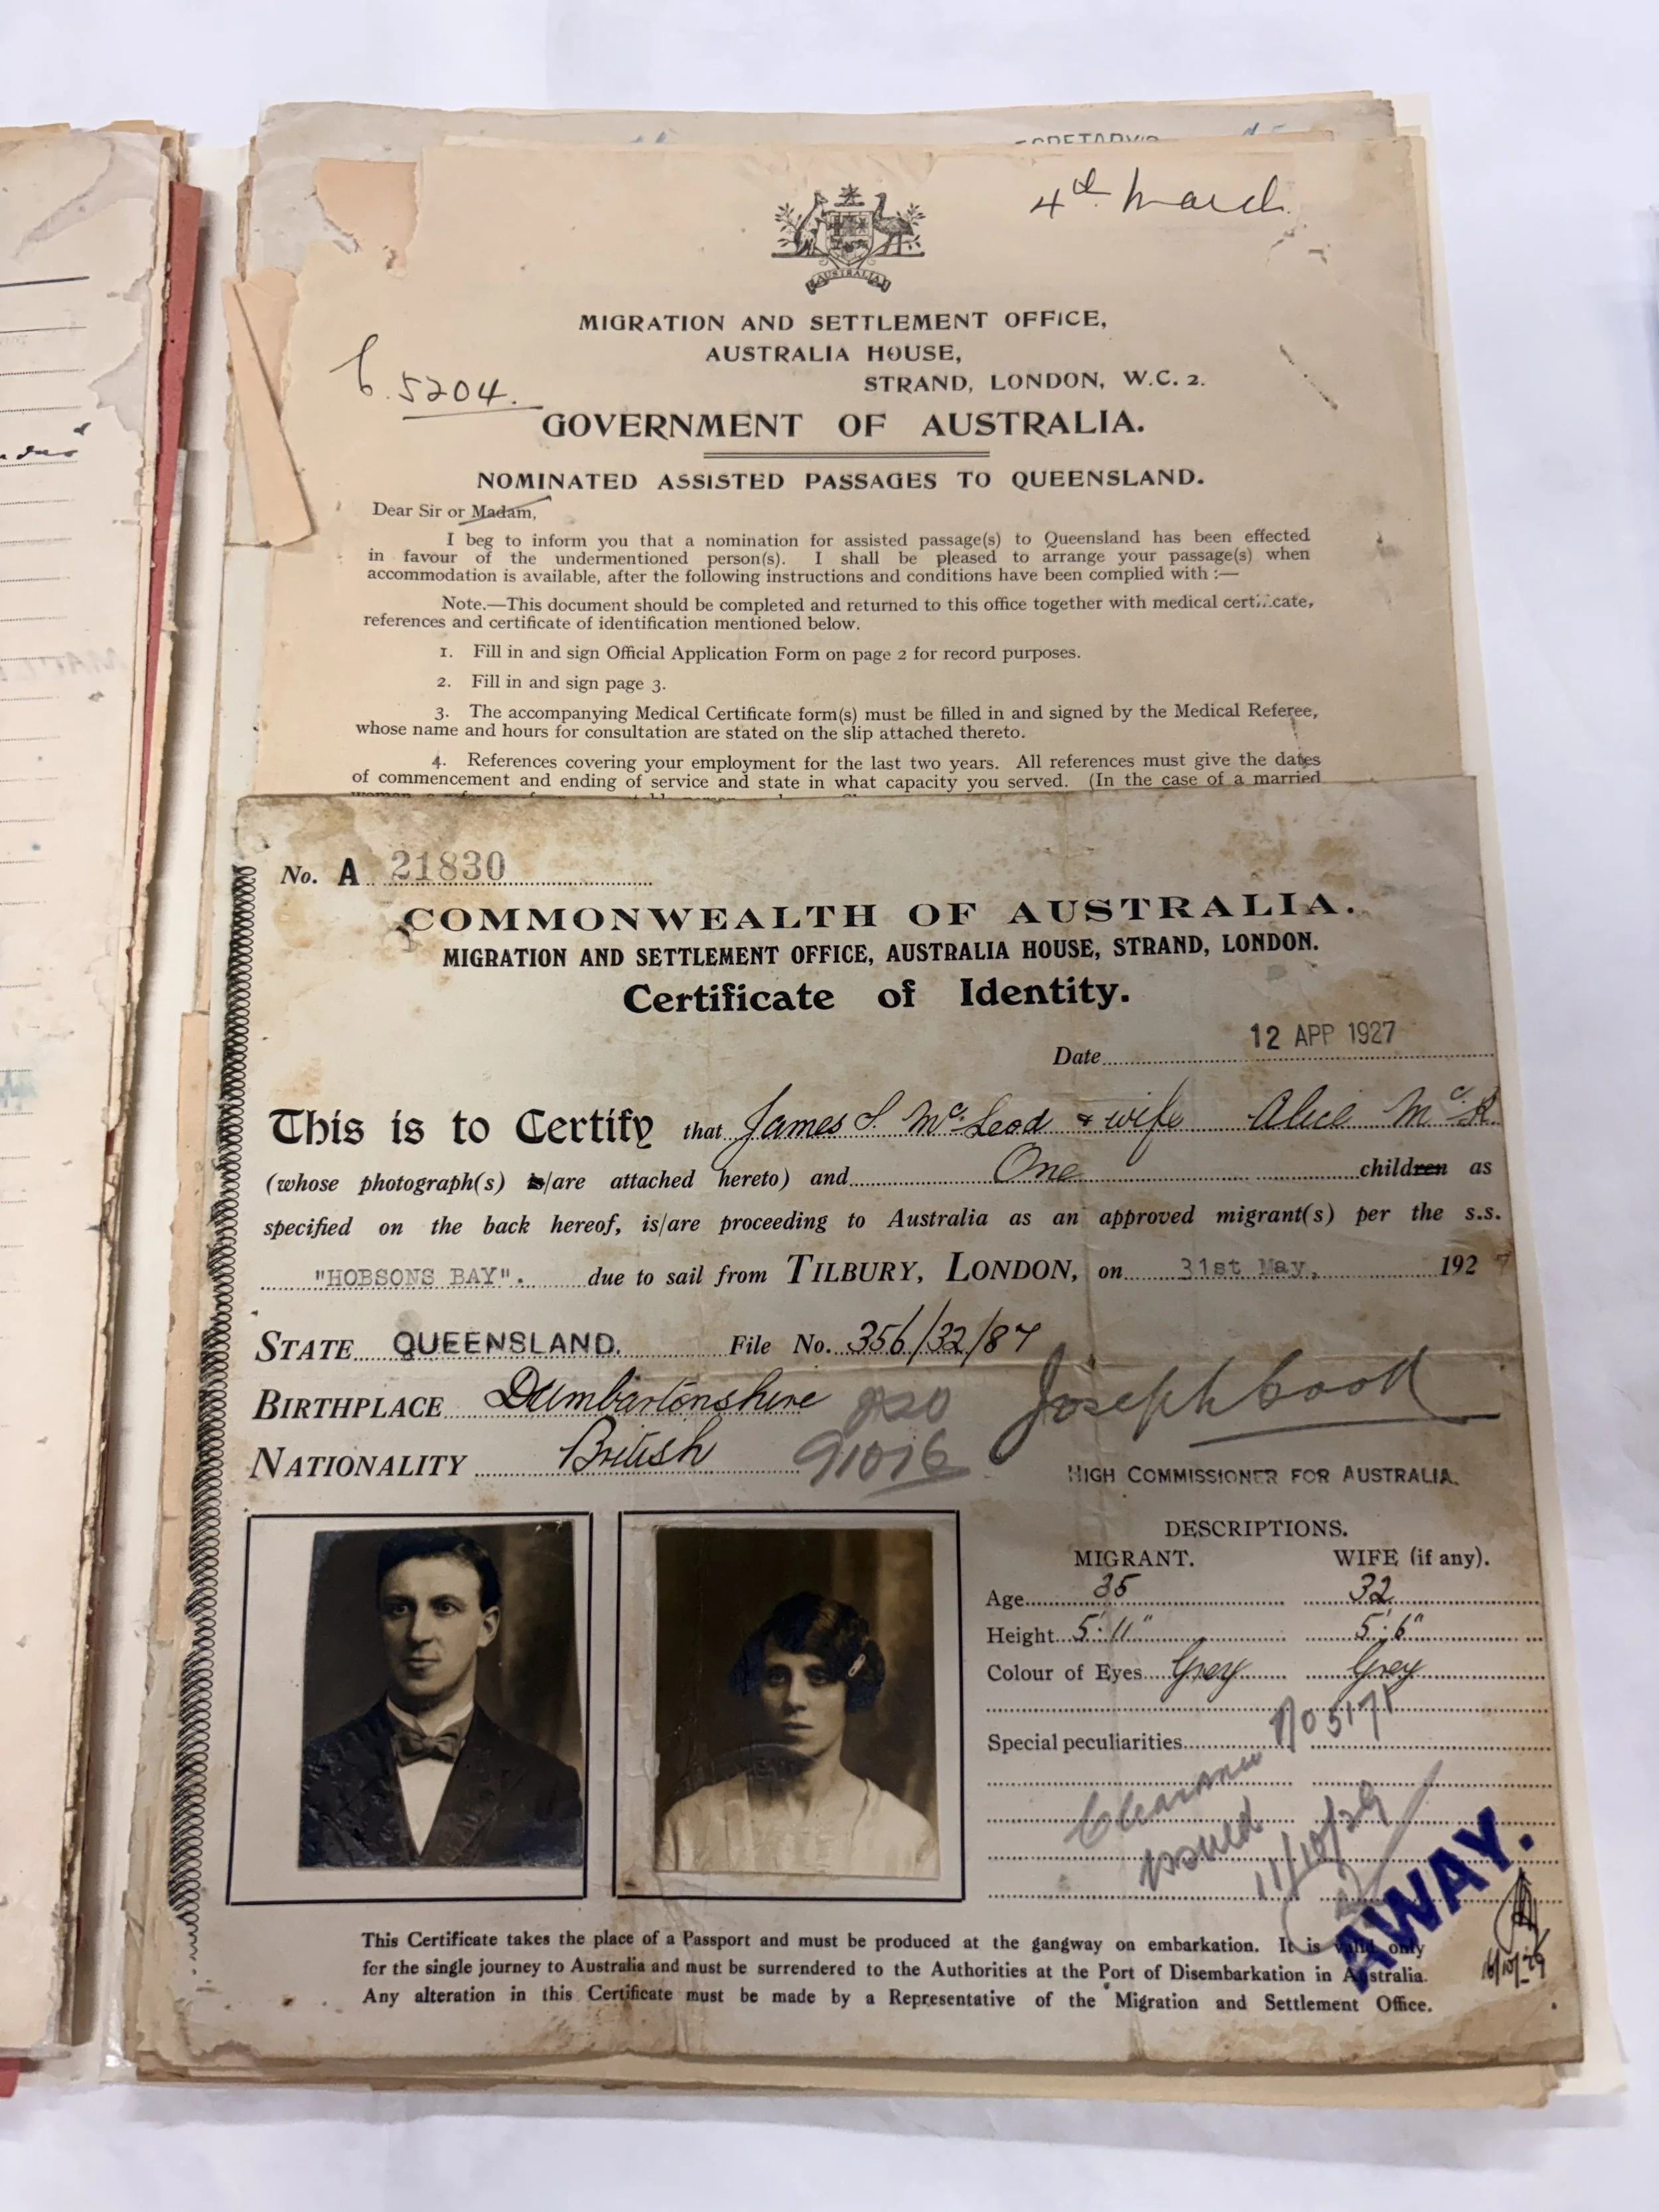 4th March
AUSTRALIA
MIGRATION AND SETTLEMENT OFFICE,
AUSTRALIA HOUSE,
STRAND, LONDON, W.C. 2.
5204.
GOVERNMENT OF AUSTRALIA.
NOMINATED ASSISTED PASSAGES TO QUEENSLAND.
Dear Sir or Madam,
I beg to inform you that a nomination for assisted passage(s) to Queensland has been effected
in favour of the undermentioned person(s). I shall be pleased to arrange your passage(s) when
accommodation is available, after the following instructions and conditions have been complied with :—
Note.—This document should be completed and returned to this office together with medical cert...cate,
references and certificate of identification mentioned below.
1. Fill in and sign Official Application Form on page 2 for record purposes.
2. Fill in and sign page 3.
3. The accompanying Medical Certificate form(s) must be filled in and signed by the Medical Referee,
whose name and hours for consultation are stated on the slip attached thereto.
4. References covering your employment for the last two years. All references must give the dates
of commencement and ending of service and state in what capacity you served. (In the case of a married
No. A 21830
COMMONWEALTH OF AUSTRALIA.
MIGRATION AND SETTLEMENT OFFICE, AUSTRALIA HOUSE, STRAND, LONDON.
Certificate of Identity.
Date 12 APP 1927
This is to Certify that James S. McLeod & wife Alice McK.
(whose photograph(s) is/are attached hereto) and One children as
specified on the back hereof, is/are proceeding to Australia as an approved migrant(s) per the s.s.
"HOBSONS BAY". due to sail from TILBURY, LONDON, on 31st May, 1927
STATE QUEENSLAND. File No. 356/32/87
BIRTHPLACE Dumbartonshire 820
NATIONALITY British 91076
Joseph Cook
HIGH COMMISSIONER FOR AUSTRALIA.
DESCRIPTIONS.
MIGRANT. WIFE (if any).
Age 35 32
Height 5'.11" 5'.6"
Colour of Eyes Grey Grey
Special peculiarities No 5171
Clearance
issued 11/10/29
AWAY.
16/10/29
This Certificate takes the place of a Passport and must be produced at the gangway on embarkation. It is valid only
for the single journey to Australia and must be surrendered to the Authorities at the Port of Disembarkation in Australia.
Any alteration in this Certificate must be made by a Representative of the Migration and Settlement Office.